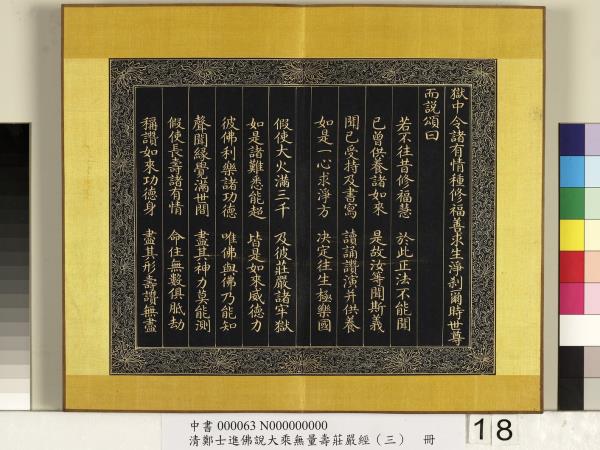 獄中令諸有情種修福善求生淨剎爾時世尊
而說頌曰
若不往昔修福慧 於此正法不能聞
已曾供養諸如來 是故汝等聞斯義
聞已受持及書寫 讀誦讚演并供養
如是一心求淨方 決定往生極樂國
假使大火滿三千 及彼莊嚴諸牢獄
如是諸難悉能超 皆是如來威德力
彼佛利樂諸功德 唯佛與佛乃能知
聲聞緣覺滿世間 盡其神力莫能測
假使長壽諸有情 命住無數俱胝劫
稱讚如來功德身 盡其形壽讚無盡
中書 000063 N000000000
清鄭士進佛說大乘無量壽莊嚴經（三） 冊
18